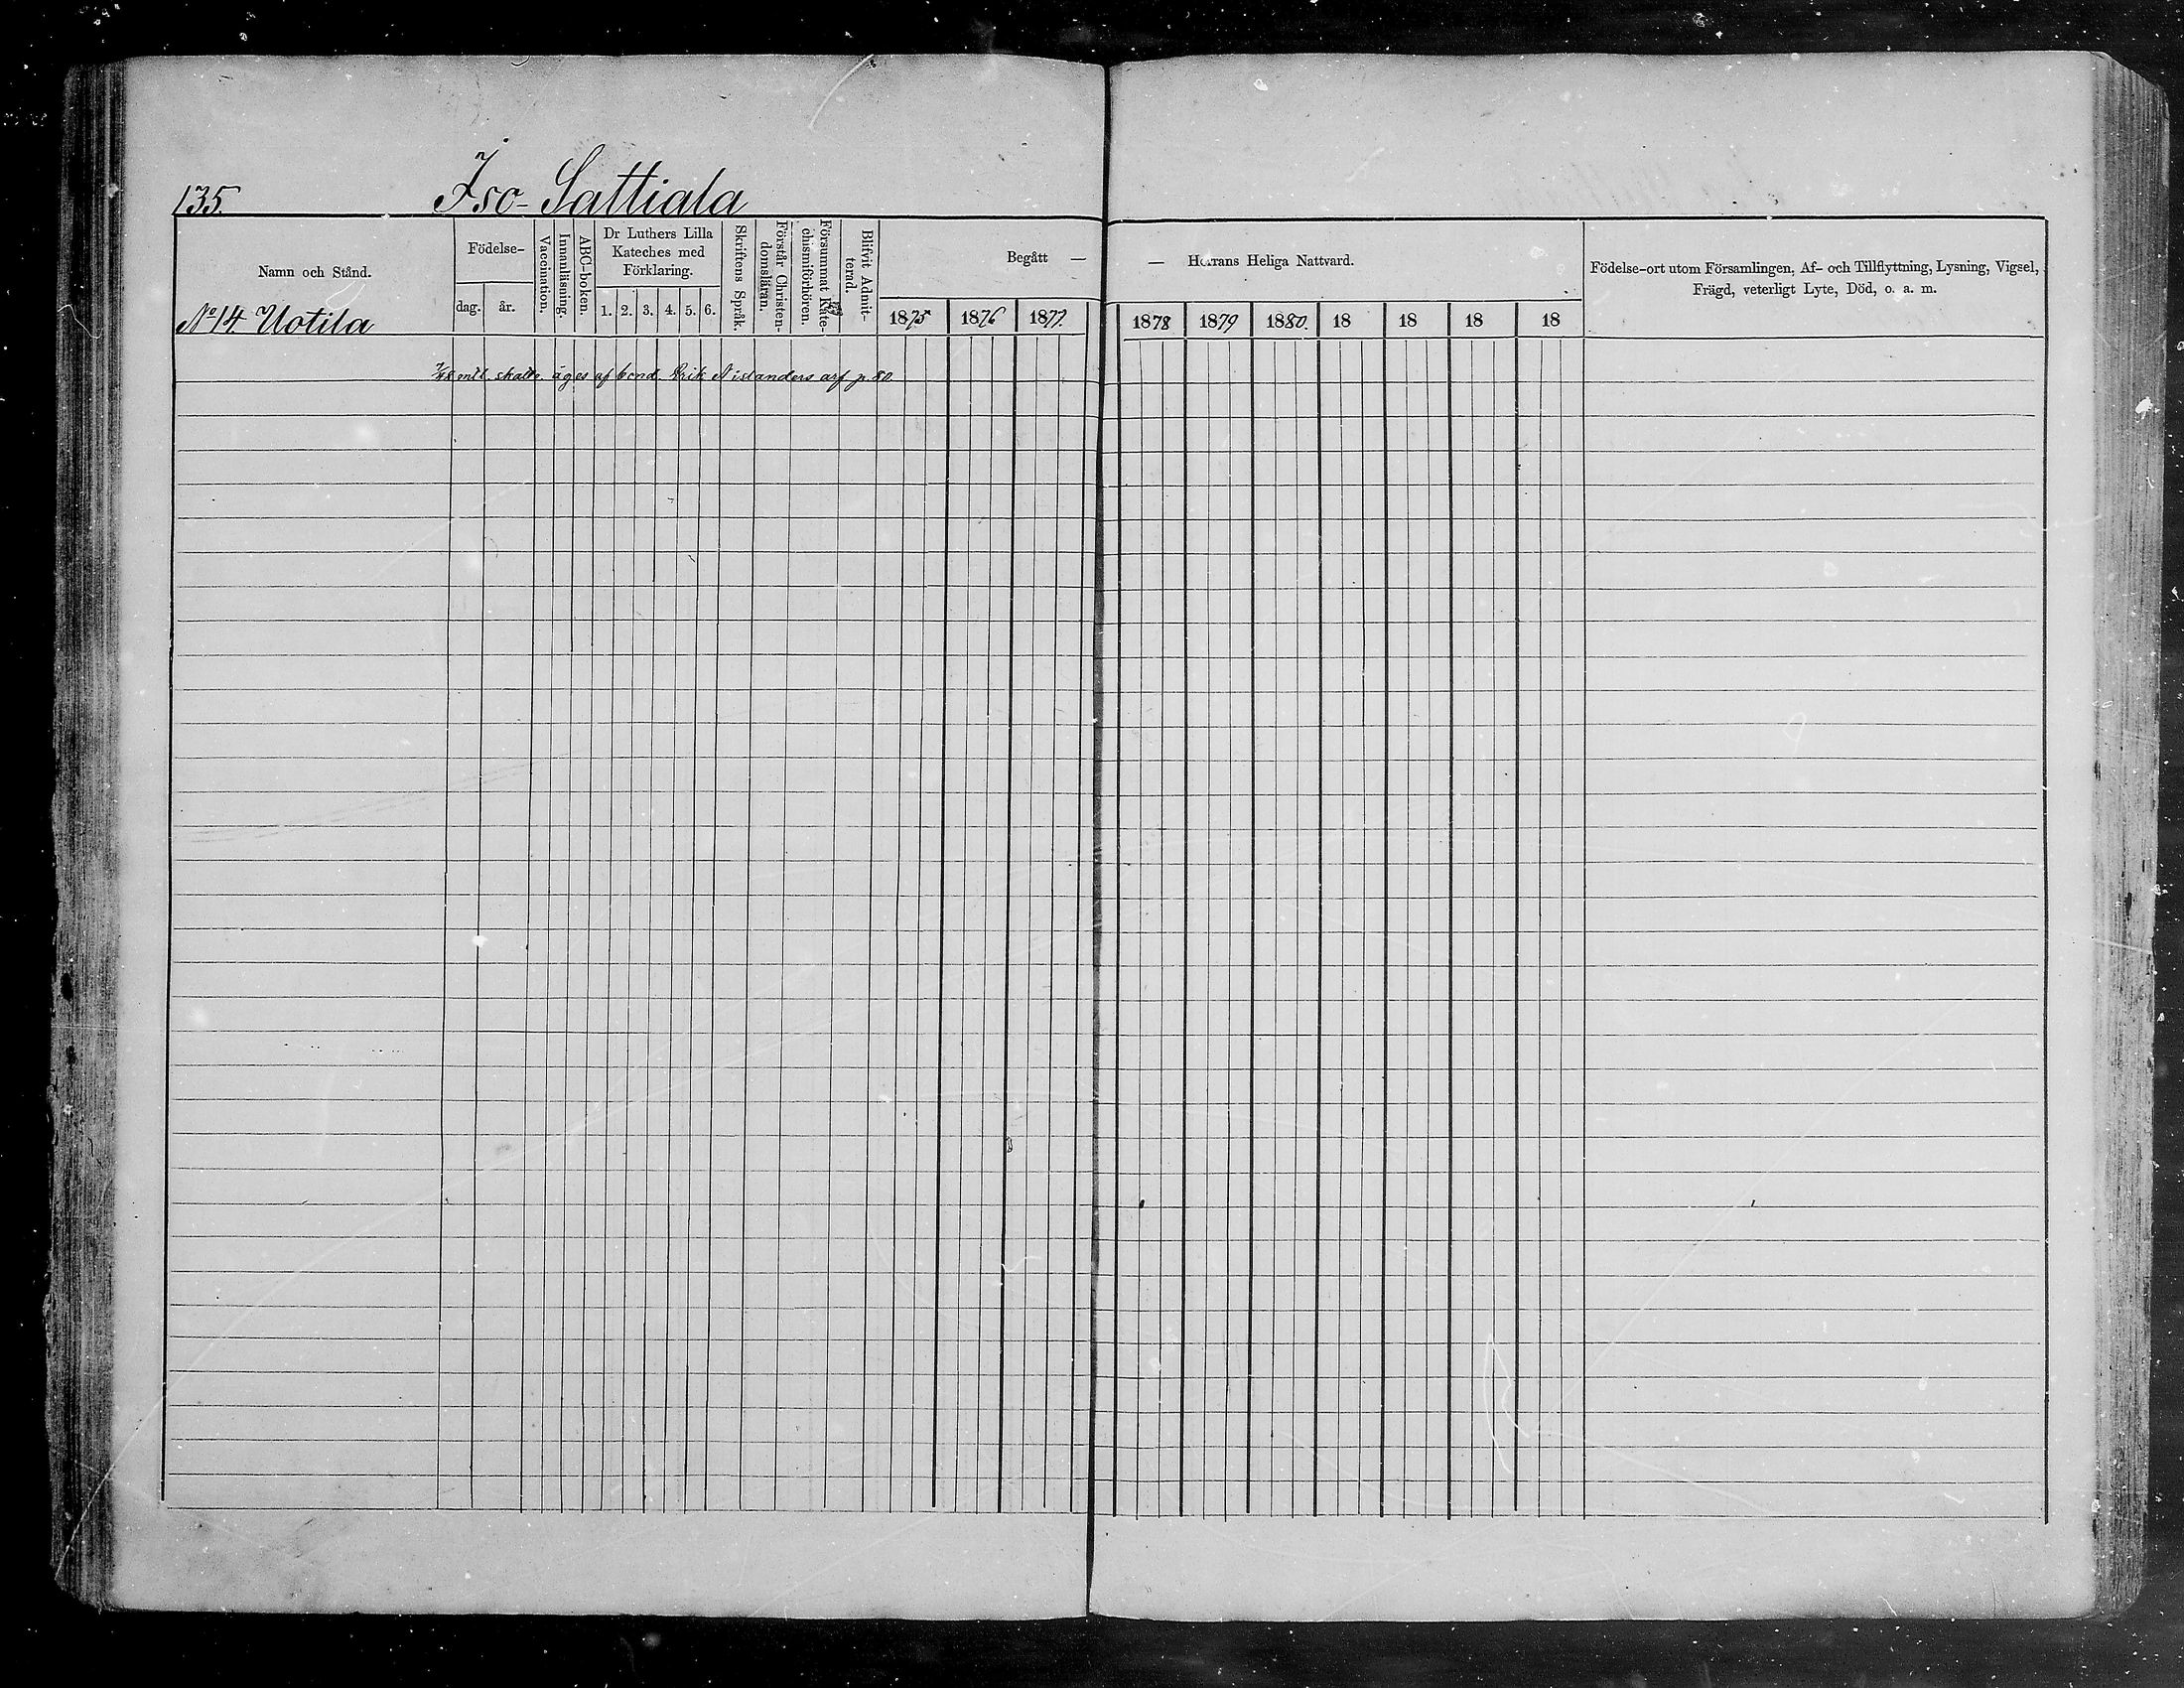 135. Iso-Sattiala
Namn och Stånd.
Födelse-
dag. år.
Vaccination.
Innanläsning.
ABC-boken.
Dr Luthers Lilla
Kateches med
Förklaring.
1. 2. 3. 4. 5. 6.
Skriftens Språk.
Förstår Christen-
domsläran.
Försummat Kate-
chismiförhören.
Blifvit Admit-
terad.
Begått —
1875 1876 1877.
— Herrans Heliga Nattvard.
1878 1879 1880. 18 18 18 18
Födelse-ort utom Församlingen, Af- och Tillflyttning, Lysning, Vigsel,
Frägd, veterligt Lyte, Död, o. a. m.
No 14 Uotila
mtl. skatte. äges af bond. Erik Nislanders arf p. 80.